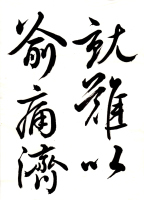 就難以
俞痛濟